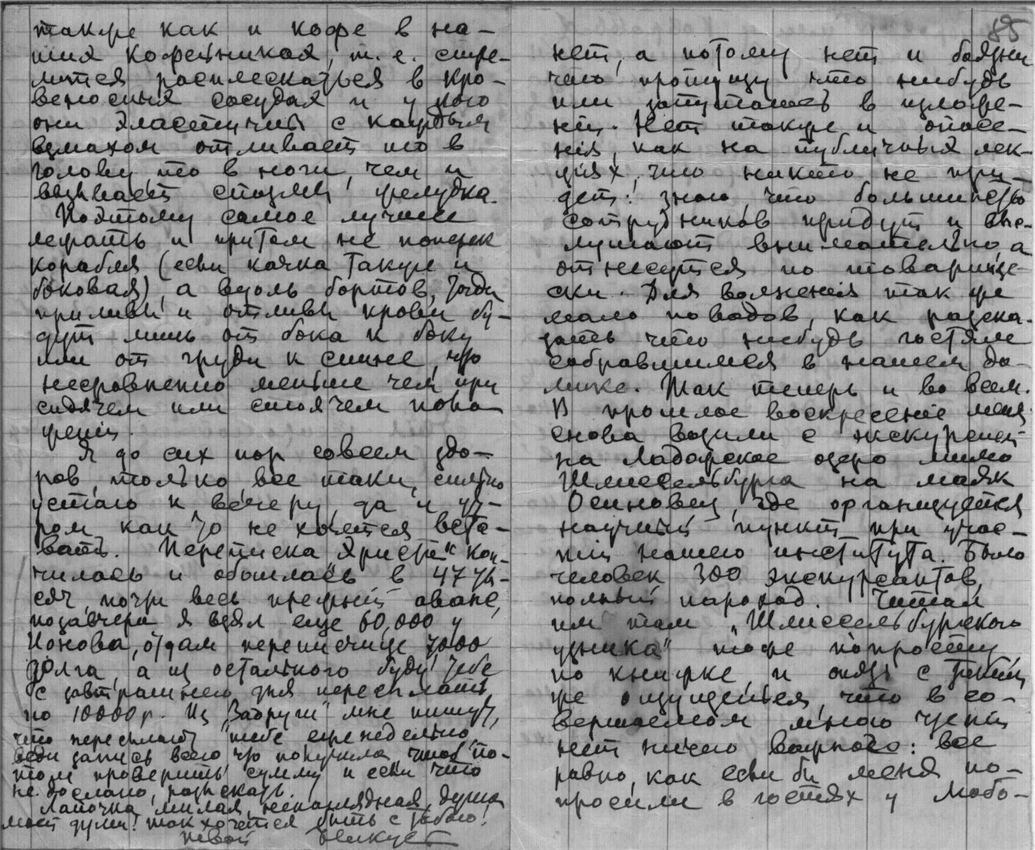 также как и кофе в на-
ших кофейниках, т.е. стре-
мится расплескаться в кро-
веносных сосудах и у кого
они эластичны с каждым
взмахом отливает то в
голову, то в ноги, чем и
вызывает спазмы желудка.
Поэтому самое лучшее
лежать и притом не поперек
корабля (если качка также и
боковая), а вдоль бортов, тогда
приливы и отливы крови бу-
дут лишь от бока к боку
или от груди к спине, что
несравненно меньше чем при
сидячем или стоячем поло
жении.
Я до сих пор совсем здо-
ров, только все таки, сильно
устаю к вечеру, да и ут-
ром как то не хочется вста-
вать. Переписка „Христа" кон-
чилась и обошлась в 47 ты-
сяч, почти весь прежний аванс,
позавчера я взял еще 60,000 у
Ионова, отдам переписчице 7000
долга, а из остального буду тебе
с завтрашнего дня пересылать
по 10000 р. Из „Задруги" мне пишут,
что пересылают тебе еженедельно,
веди запись всего что получила, чтоб по-
том проверить сумму и если что
не дослано, разыскать.
Лапочка, милая, ненаглядная, душа
моей души! так хочется быть с тобою!
твой
85
нет, а потому нет и боязни
что пропущу что нибудь
или запутаюсь в изложе-
нии. Нет также и опасе-
нія, как на публичных лек-
циях, что никто не при-
дет: знаю, что большинство
сотрудников придут и выс-
лушают внимательно, а
отнесутся по товарище-
ски. Для волненія так же
мало поводов, как расска-
зать что нибудь гостям
собравшимся в нашем до-
мике. Так теперь и во всем.
В прошлое воскресеніе меня
снова возили с экскурсией
на Ладожское озеро мимо
Шлиссельбурга на маяк
Осиновец, где организуется
научный пункт при учас-
тіи нашего института. Было
человек 300 экскурсантов,
полный пароход. Читал
им там „Шлиссельбургского
узника" тоже попросту
по книжке и опять с таким
же ощущеньем, что в со-
вершаемом мною чтении
нет ничего важного: все
равно, как если бы меня по-
просили в гостях у Любо-